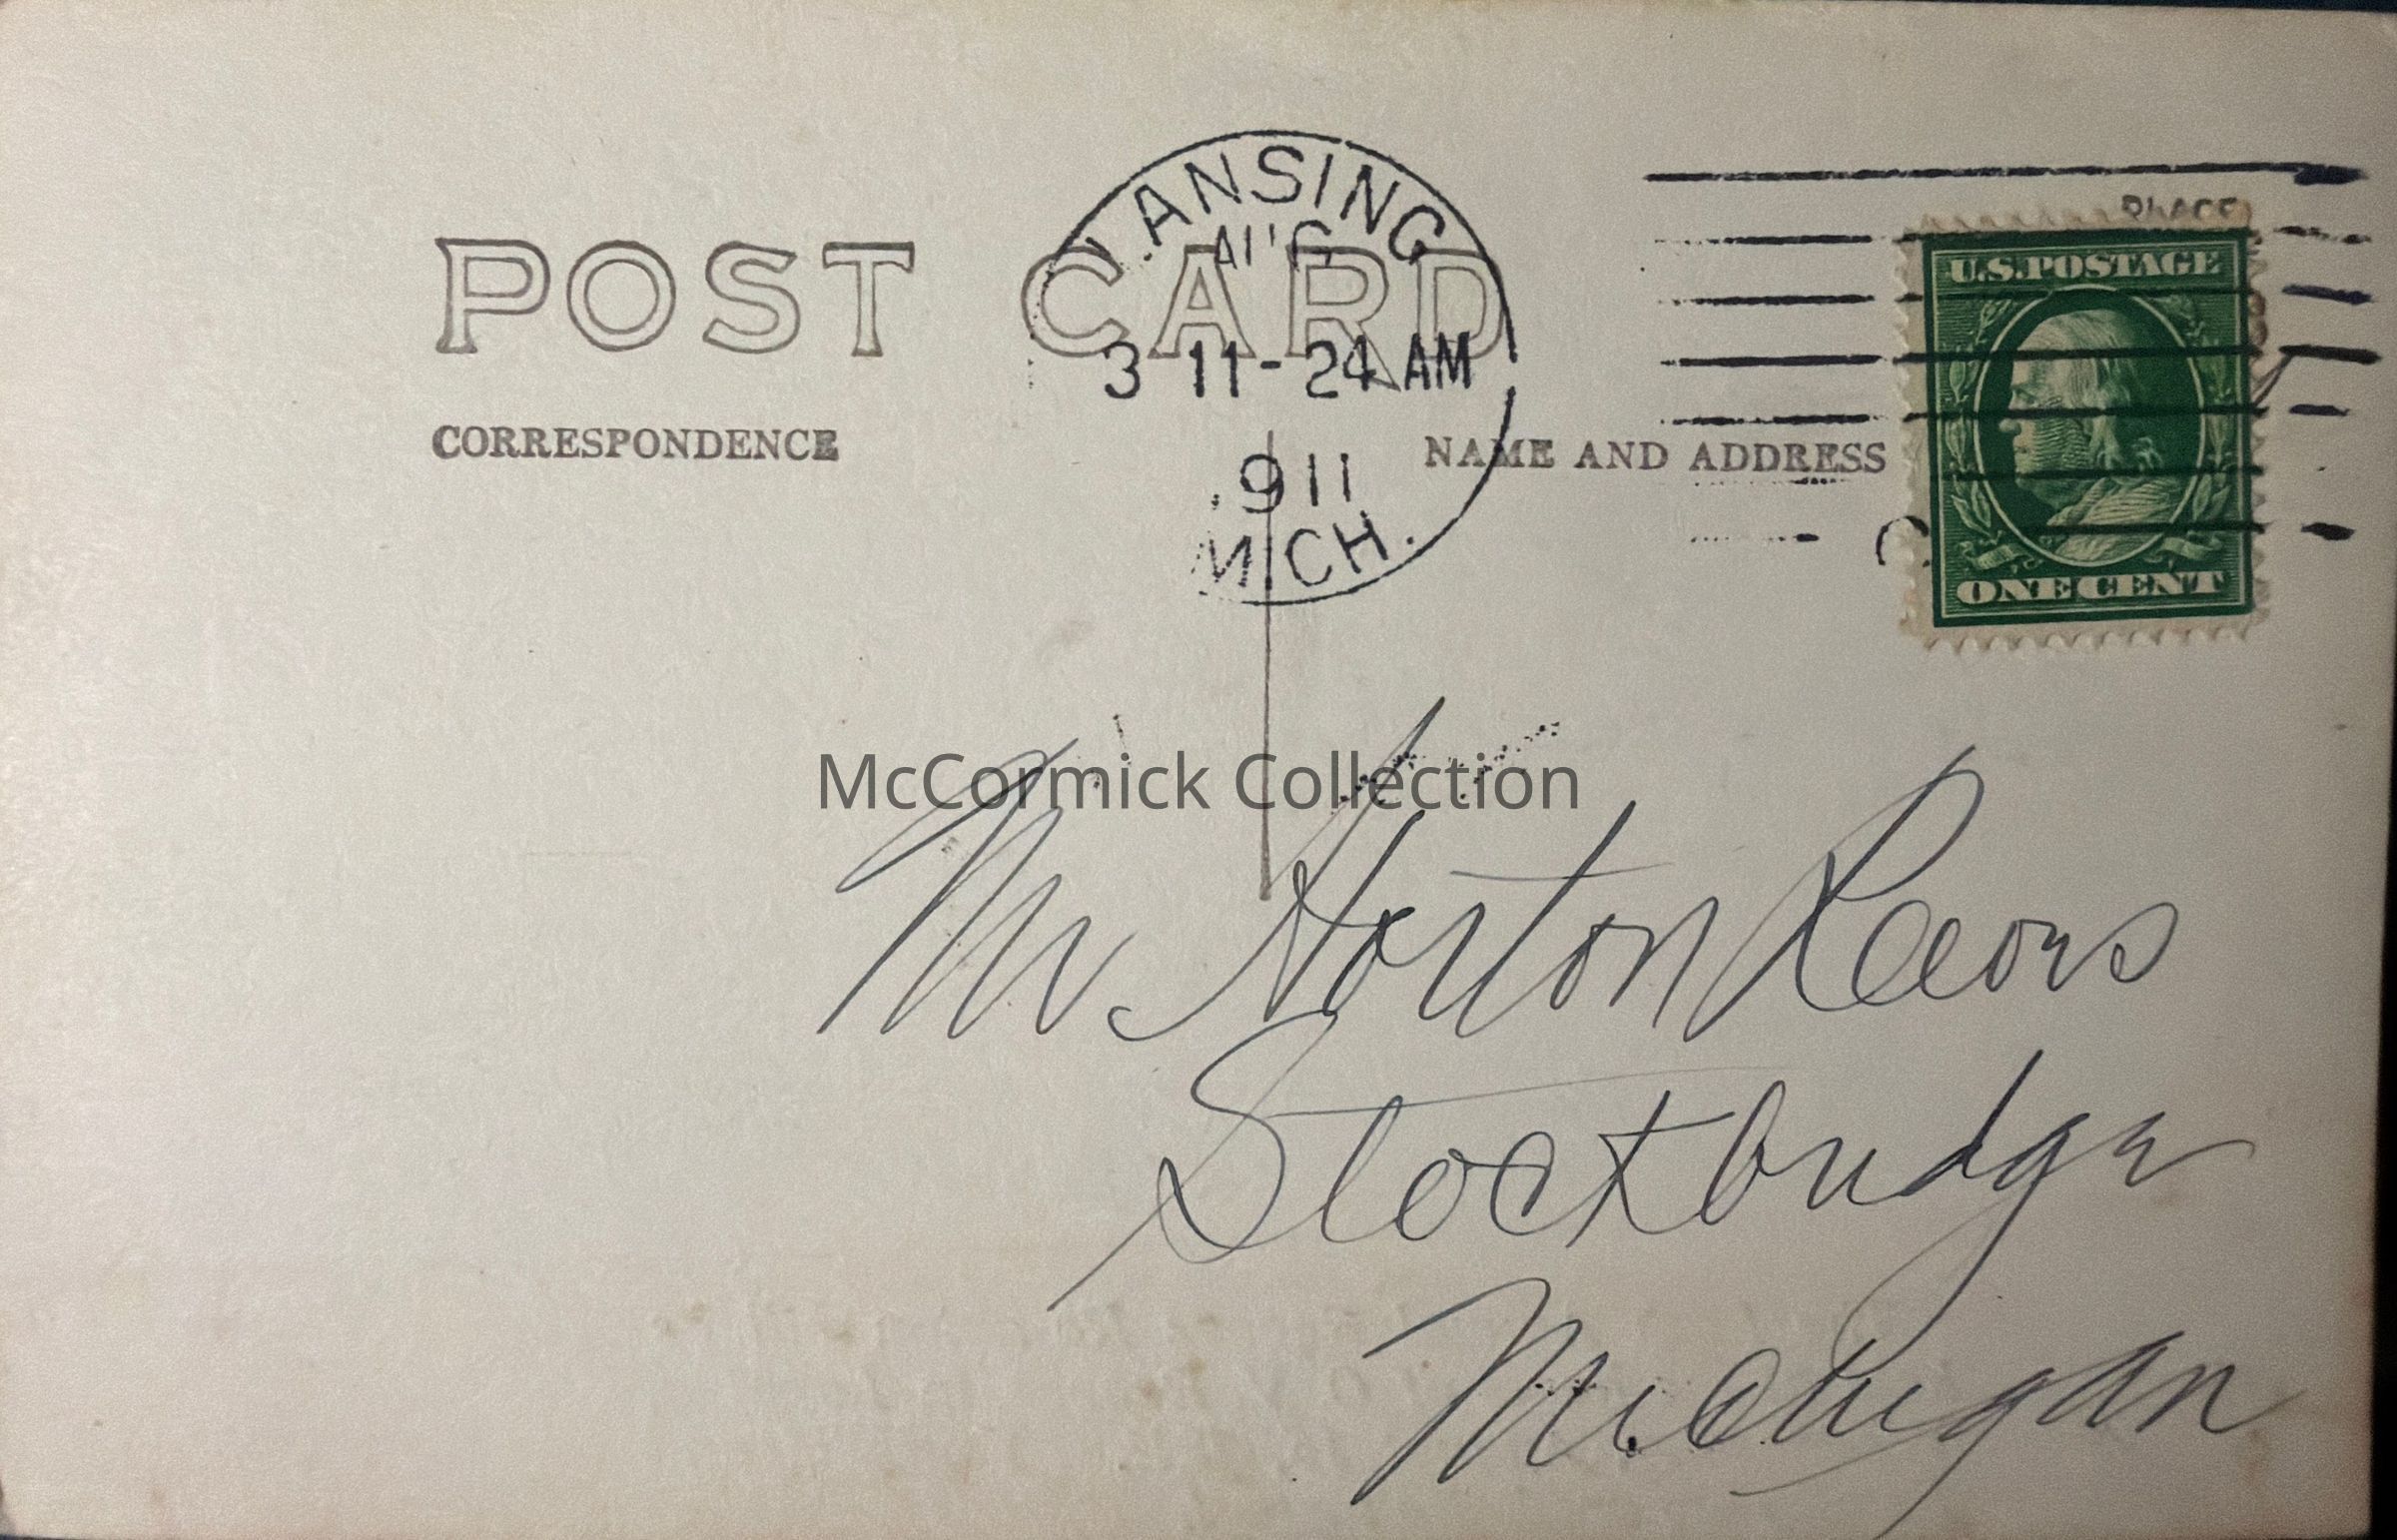 LANSING
AUG
3 11-24 AM
911
MICH.
PLACE
U.S. POSTAGE
ONE CENT
POST CARD
CORRESPONDENCE
NAME AND ADDRESS
McCormick Collection
Mr Horton
Stockbridge
Michigan